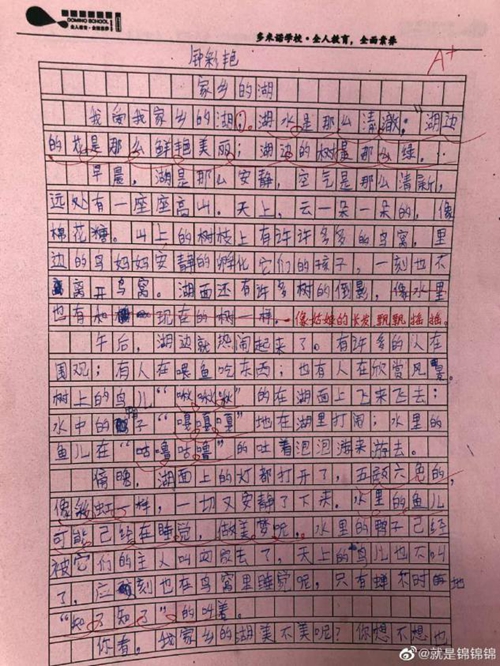 DOMINO SCHOOL
多米诺学校·全人教育，全面素养
A+
钟彩艳
家乡的湖
我爱我家乡的湖，湖水是那么清澈；湖边
的花是那么鲜艳美丽；湖边的树是那么绿。
早晨，湖是那么安静，空气是那么清新，
远处有一座座高山。天上，云一朵一朵的，像
棉花糖。山上的树枝上有许许多多的鸟窝，里
边的鸟妈妈安静的孵化它们的孩子，一刻也不
离开鸟窝。湖面还有许多树的倒影，像水里
也有现在的树一样。像姑娘的长发飘飘摇摇。
午后，湖边就热闹起来了。有许多的人在
围观；有人在喂鱼吃东西；也有人在欣赏风景。
树上的鸟儿“啾啾啾”的在湖面上飞来飞去；
水中的鸭子“嘎嘎嘎”地在湖里打闹；水里的
鱼儿在“咕噜咕噜”的吐着泡泡游来游去。
傍晚，湖面上的灯都打开了，五颜六色的，
像彩虹一样，一切又安静了下来。水里的鱼儿
可能已经在睡觉，做美梦呢，水里的鸭子已经
被它们的主人叫回家去了，天上的鸟儿也不叫
了，应刻也在鸟窝里睡觉呢，只有蝉不时的地
“知了知了”的叫着。
你看，我家乡的湖美不美呢？你想不想也
@就是锦锦锦